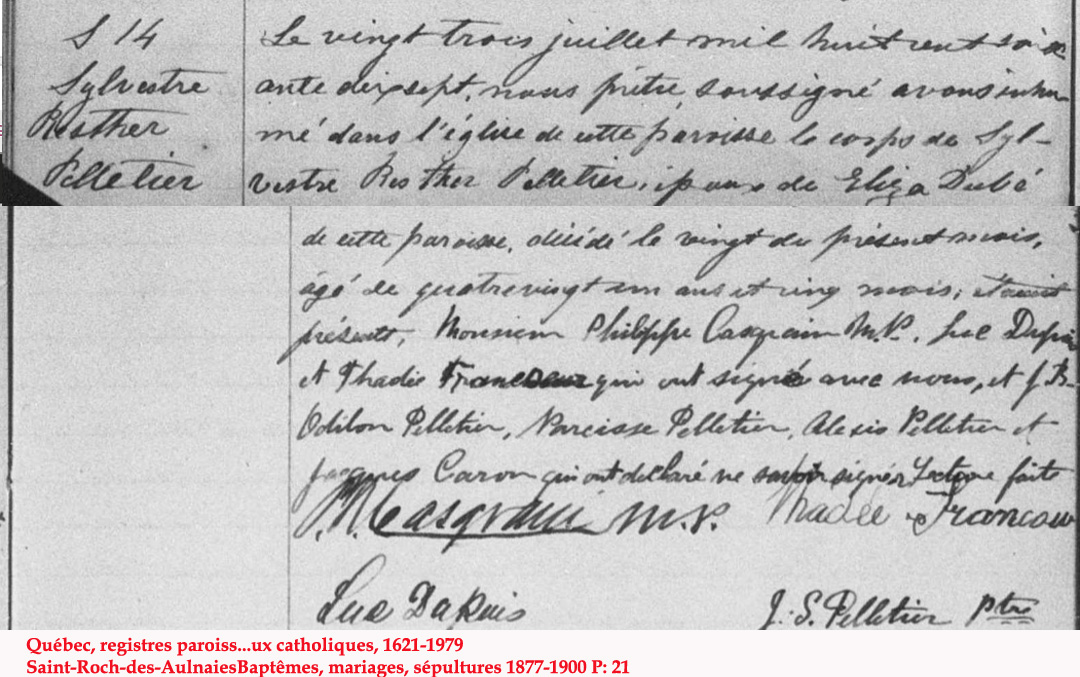 S 14
Sylvestre
Rosther
Pelletier
Le vingt trois juillet mil huit cent soix
ante dix sept, nous prêtre, soussigné avons inhu
mé dans l'église de cette paroisse le corps de Syl-
vestre Rosther Pelletier, époux de Eliza Dubé
de cette paroisse, décédé le vingt du présent mois,
âgé de quatrevingt un ans et cinq mois; étaient
présents, Monsieur Philippe Casgrain M.P. Luc Dupuis
et Thadée Francoeur qui ont signé avec nous, et J. B.-
Odilon Pelletier, Narcisse Pelletier, Alexis Pelletier et
Jacques Caron qui ont déclaré ne savoir signer Lecture faite
P. B. Casgrain M.P. Thadée Francoeur
Luc Dupuis J. S. Pelletier Ptre
Québec, registres paroiss...ux catholiques, 1621-1979
Saint-Roch-des-AulnaiesBaptêmes, mariages, sépultures 1877-1900 P: 21